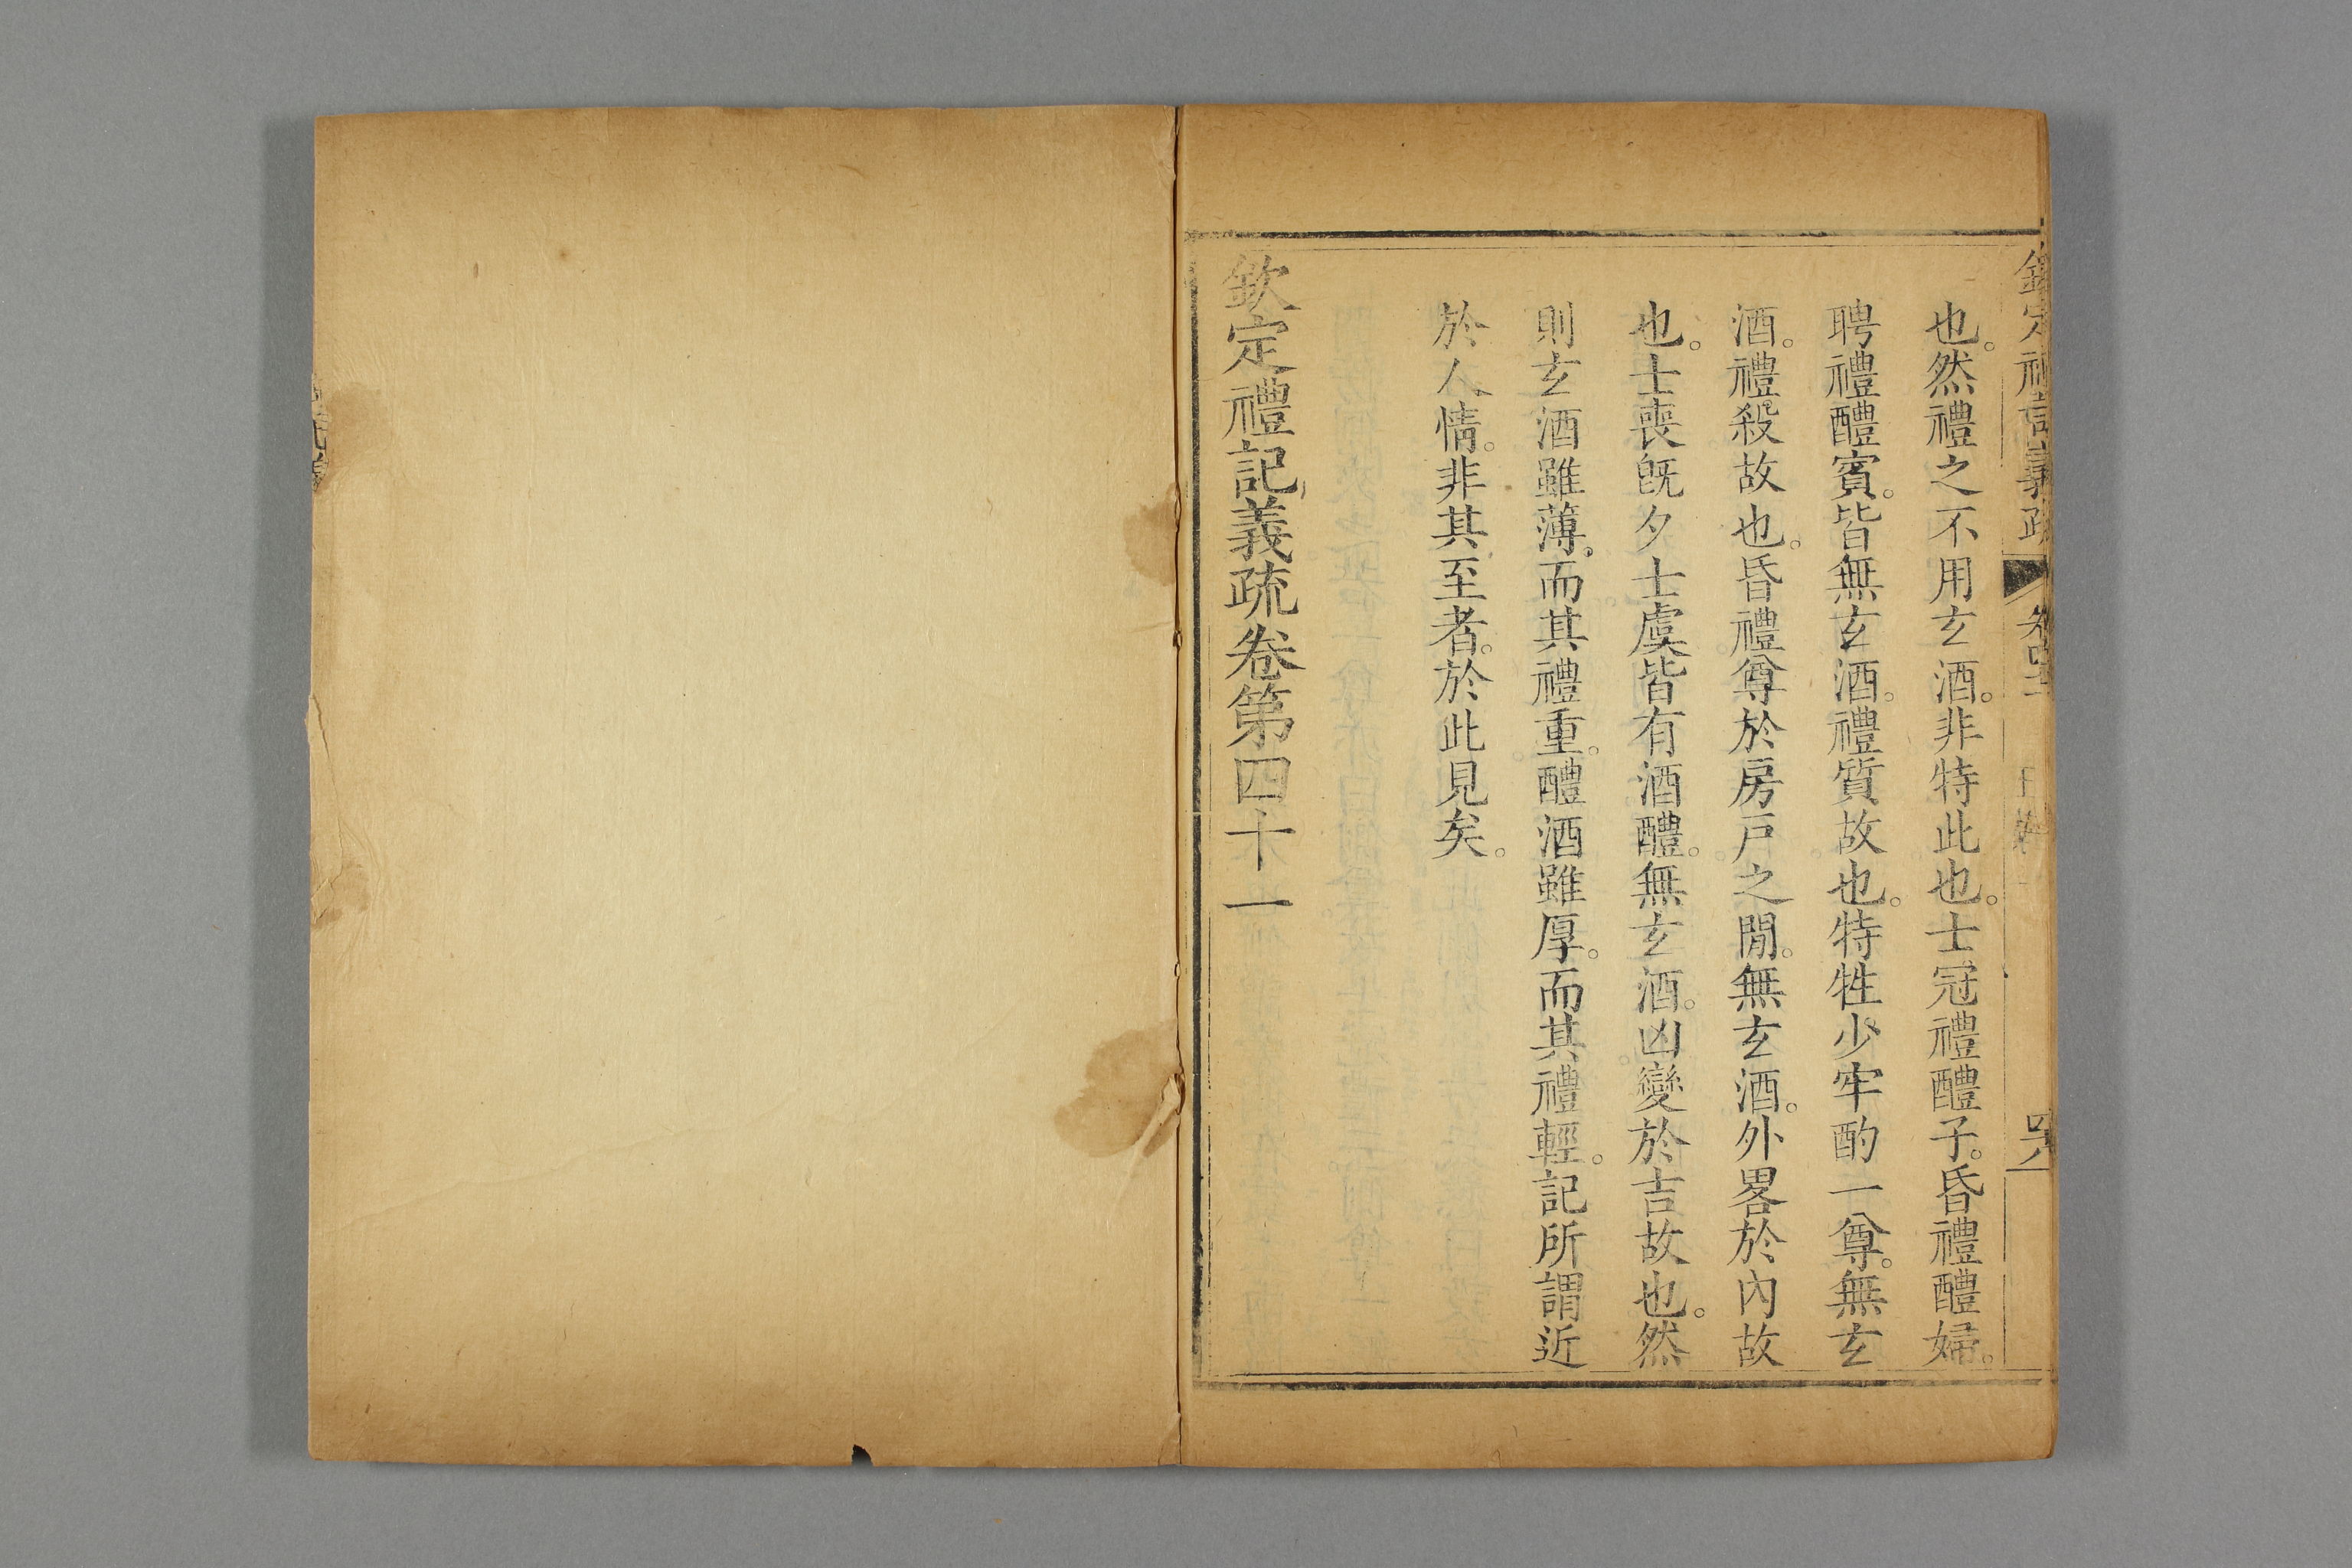 欽定禮記義疏 卷四十一
也。然禮之不用玄酒。非特此也。士冠禮醴子。昏禮醴婦。
聘禮醴賓。皆無玄酒。禮質故也。特牲少牢酌一尊。無玄
酒。禮殺故也。昏禮尊於房戶之閒。無玄酒。外畧於內故
也。士喪旣夕士虞皆有酒醴。無玄酒。凶變於吉故也。然
則玄酒雖薄。而其禮重。醴酒雖厚。而其禮輕。記所謂近
於人情。非其至者。於此見矣。
欽定禮記義疏卷第四十一